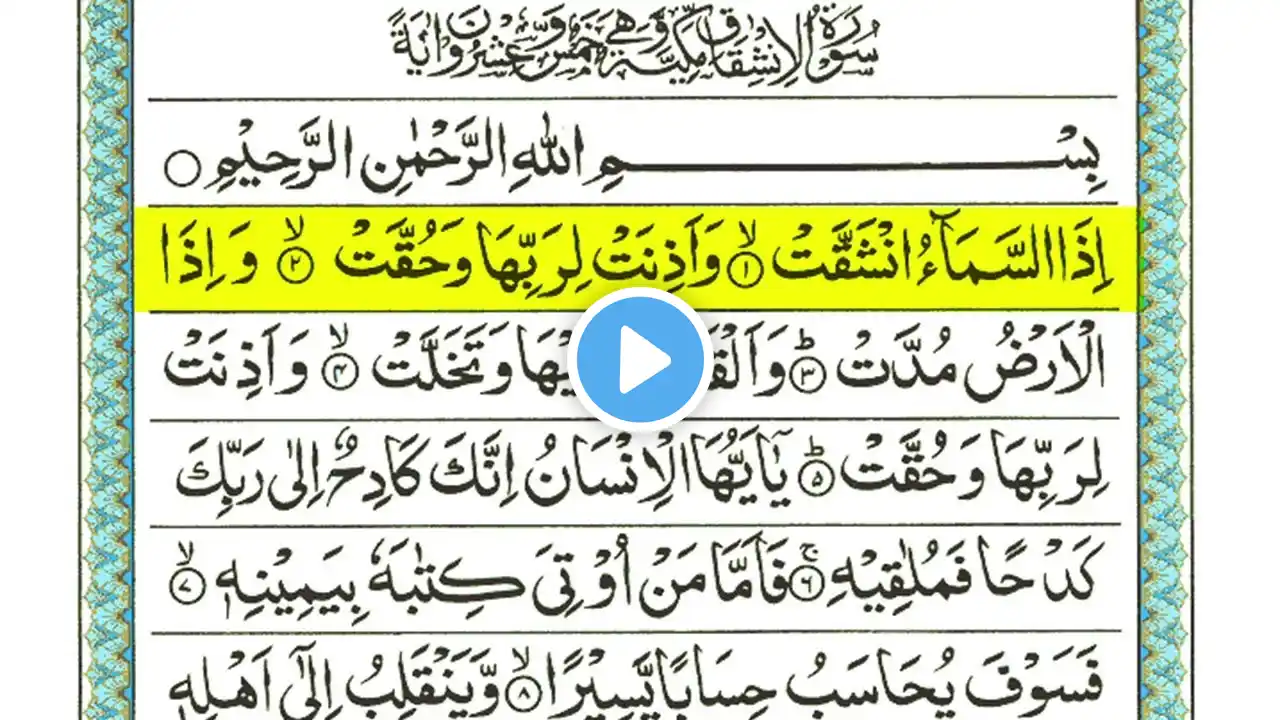 سُوْرَةُ الْاِنْشِقَاقِ مَكِّيَّةٌ وَّهِىَ خَمْسٌ وَّعِشْرُوْنَ اٰيَةً
بِسْمِ اللهِ الرَّحْمٰنِ الرَّحِيْمِ
اِذَا السَّمَآءُ انْشَقَّتْ ۙ۱ وَاَذِنَتْ لِرَبِّهَا وَحُقَّتْ ۙ۲ وَاِذَا
الْاَرْضُ مُدَّتْ ؕ۳ وَاَلْقَ يْهَا وَتَخَلَّتْ ۙ۴ وَاَذِنَتْ
لِرَبِّهَا وَحُقَّتْ ؕ۵ يٰۤاَيُّهَا الْاِنْسَانُ اِنَّكَ كَادِحٌ اِلٰى رَبِّكَ
كَدْحًا فَمُلٰقِيْهِ ۚ۶ فَاَمَّا مَنْ اُوْتِىَ كِتٰبَهٗ بِيَمِيْنِهٖ ۙ۷
فَسَوْفَ يُحَاسَبُ حِسَابًا يَّسِيْرًا ۙ۸ وَّيَنْقَلِبُ اِلٰٓى اَهْلِهٖ